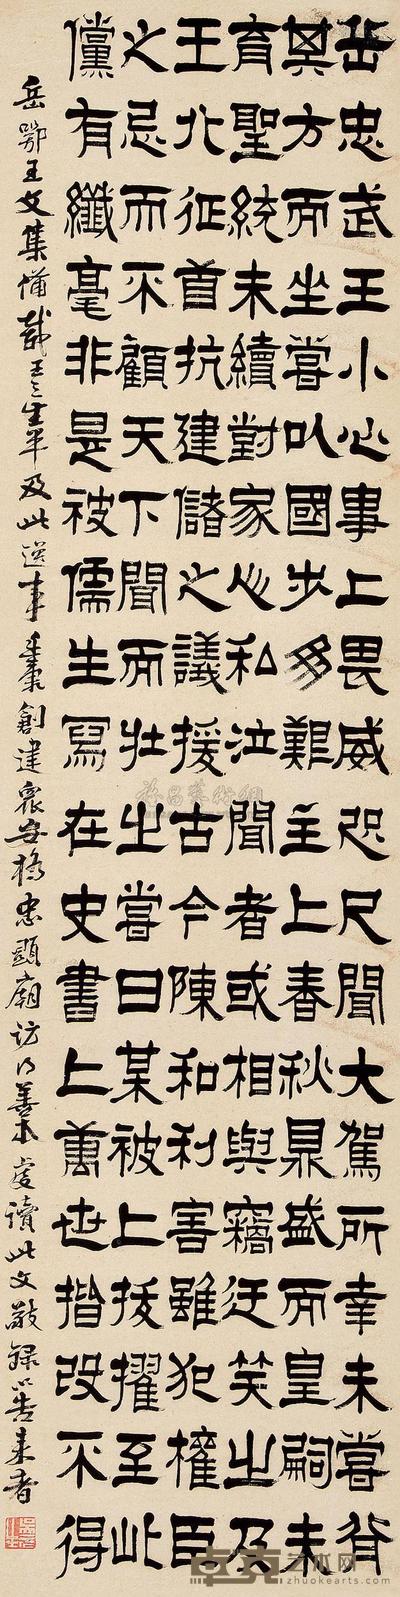 岳忠武王小心事上畏威咫尺聞大駕所幸未嘗背
其方而坐嘗以國步多難主上春秋鼎盛而皇嗣未
育聖統未續對家心私泣聞者或相與竊迂笑之及
王北征首抗建儲之議援古今陳和利害雖犯權臣
之忌而不顧天下聞而壯之嘗曰某被上拔擢至此
儻有纖毫非是被儒生寫在史書上萬世揩改不得
岳鄂王文集備載王之生平及此逸事廷康創建衆安橋忠顯廟訪得善本虔讀此文敬録以告来者
卓克艺术网
www.zhuokearts.com